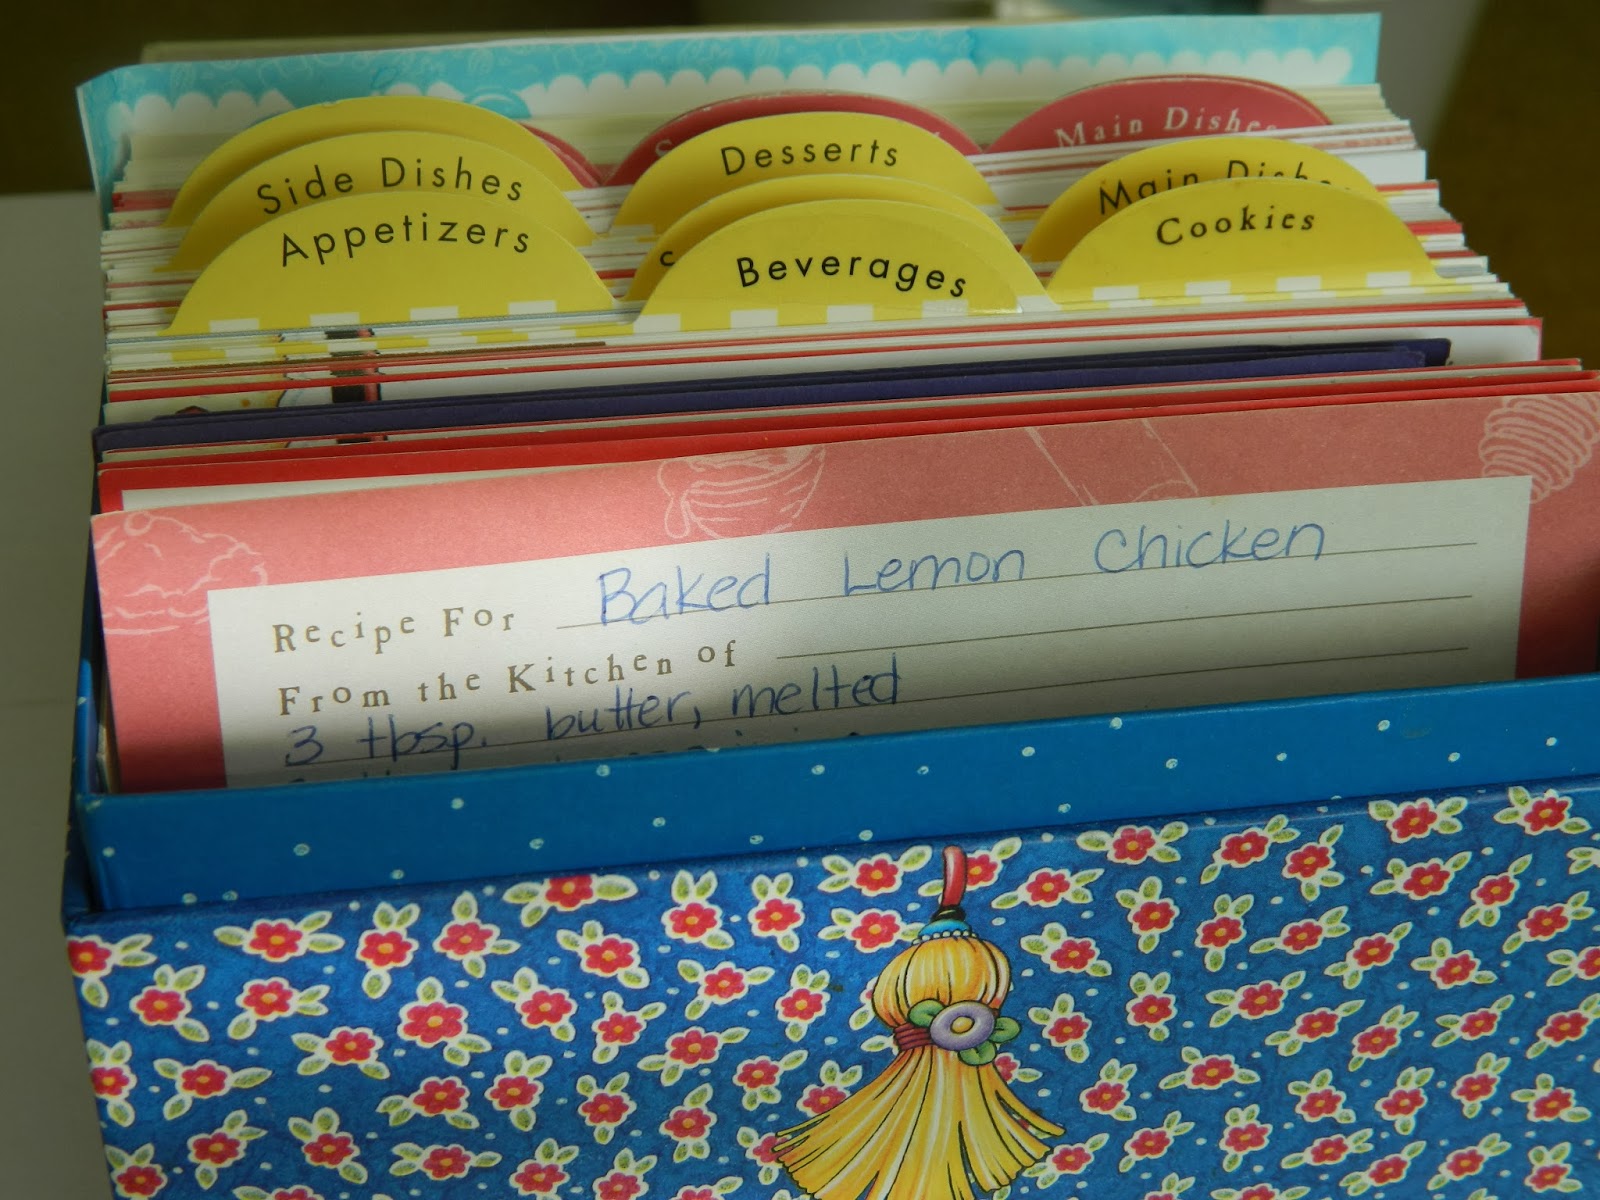 Main Dishes
Desserts
Side Dishes
Main Dishes
Appetizers
Beverages
Cookies
Recipe For Baked Lemon Chicken
From the Kitchen of
3 tbsp. butter, melted